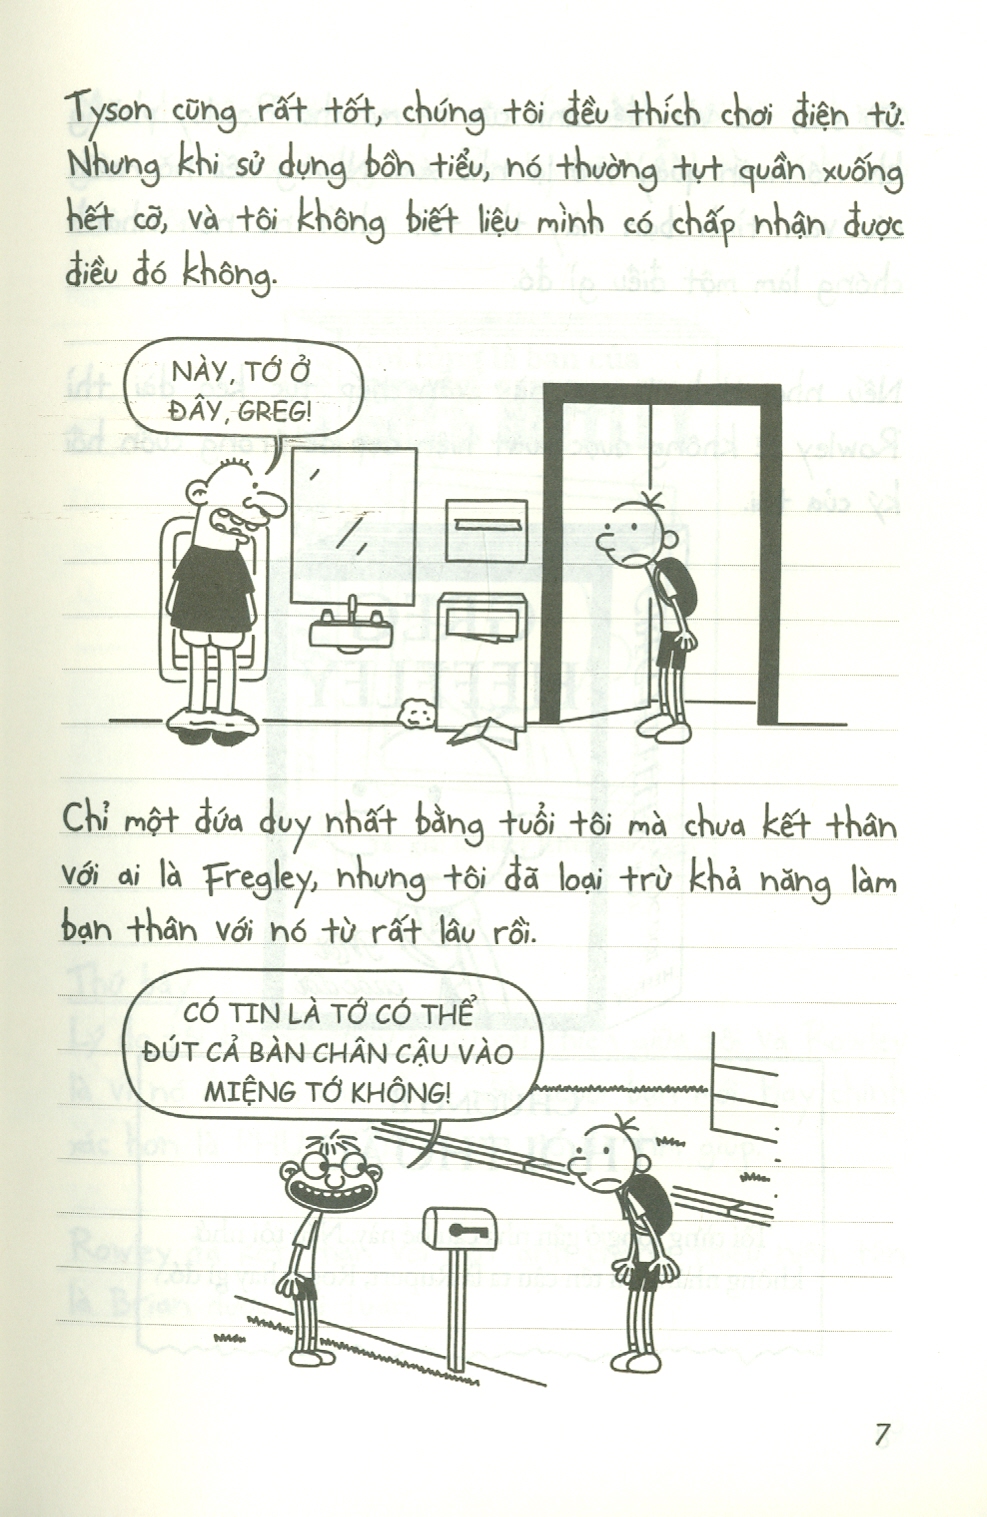 Tyson cũng rất tốt, chúng tôi đều thích chơi điện tử.
Nhưng khi sử dụng bồn tiểu, nó thường tụt quần xuống
hết cỡ, và tôi không biết liệu mình có chấp nhận được
điều đó không.
NÀY, TỚ Ở
ĐÂY, GREG!
Chỉ một đứa duy nhất bằng tuổi tôi mà chưa kết thân
với ai là Fregley, nhưng tôi đã loại trừ khả năng làm
bạn thân với nó từ rất lâu rồi.
CÓ TIN LÀ TỚ CÓ THỂ
ĐÚT CẢ BÀN CHÂN CẬU VÀO
MIỆNG TỚ KHÔNG!
7